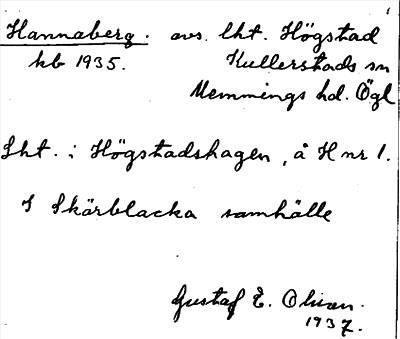 Hannaberg. avs. lht. Högstad
kb 1935. Kullerstads sn
Memmings hd. Ögl
Lht. i Högstadshagen, å H nr 1.
I Skärblacka samhälle
Gustaf E. Olsson.
1937.